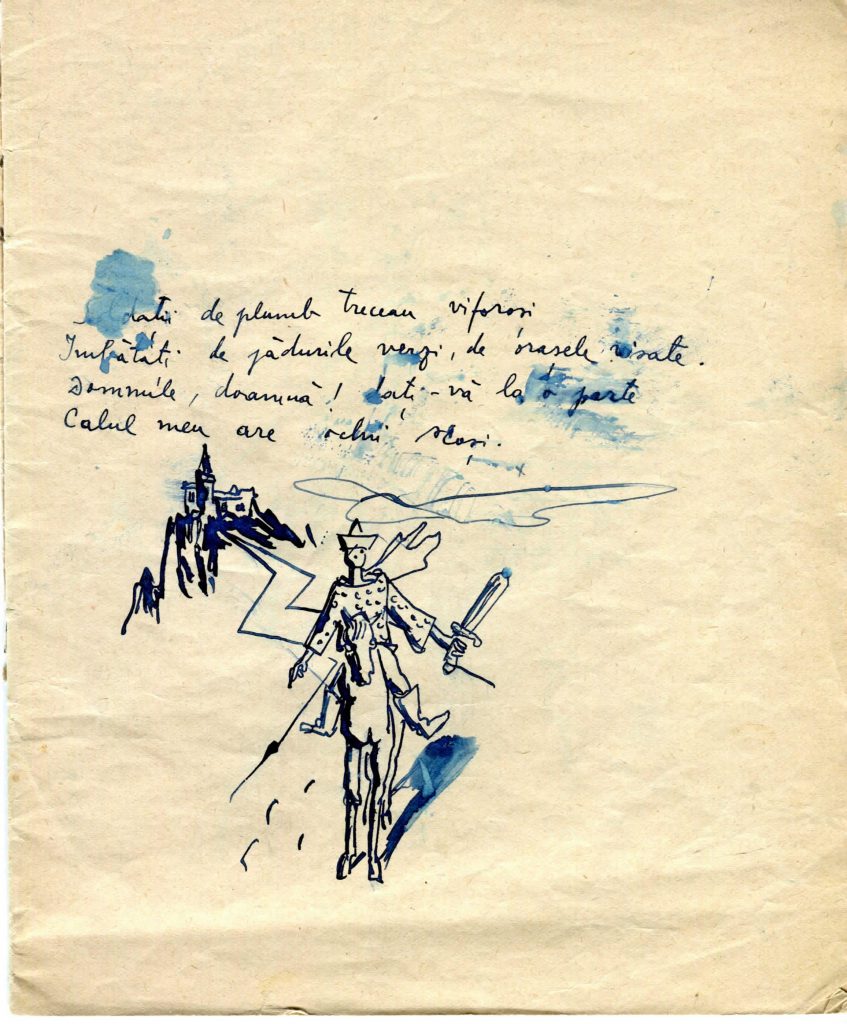 datii de plumb treceau viforoși
Îmbătați de jadurile verzi, de orașele visate.
Domnule, doamnă! Dați-vă la o parte
Calul meu are ochii scoși.